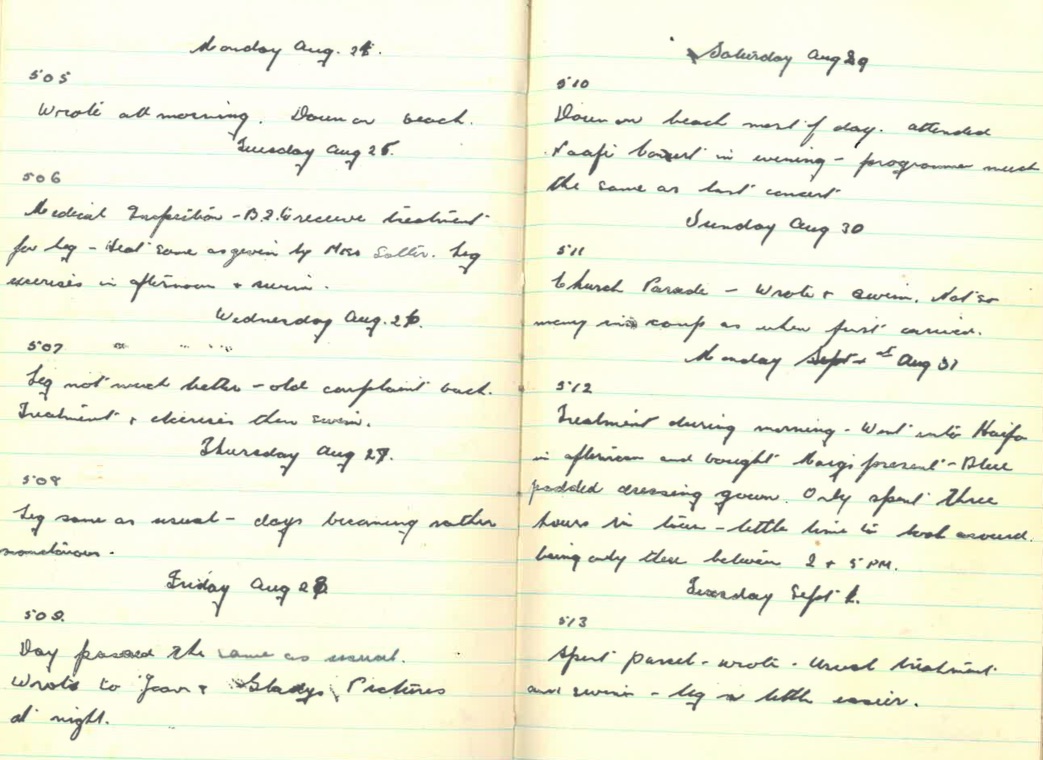 Monday Aug. 24.
505
Wrote all morning. Down on beach.
Tuesday Aug 25.
506
Medical Inspection - B2. receive treatment
for leg - Heat same as given by Miss Salter. Leg
exercises in afternoon + swim.
Wednesday Aug. 26.
507
Leg not much better - old complaint back.
Treatment + exercises then swim.
Thursday Aug 27.
508
Leg same as usual - days becoming rather
monotonous.
Friday Aug 28
509.
Day passed the same as usual.
Wrote to Joan + Gladys. Pictures
at night.
Saturday Aug 29
510
Down on beach most of day. attended
Naafi Concert in evening - programme much
the same as last concert
Sunday Aug 30
511
Church Parade - Wrote + swim. Not so
many in camp as when first arrived.
Monday Sept 1st Aug 31
512
Treatment during morning - Went into Haifa
in afternoon and bought Margs present - Blue
padded dressing gown. Only spent three
hours in town - little time to look around.
being only there between 2 + 5 PM.
Tuesday Sept 1.
513
Spent parcel - wrote - Usual treatment
and swim - leg a little easier.